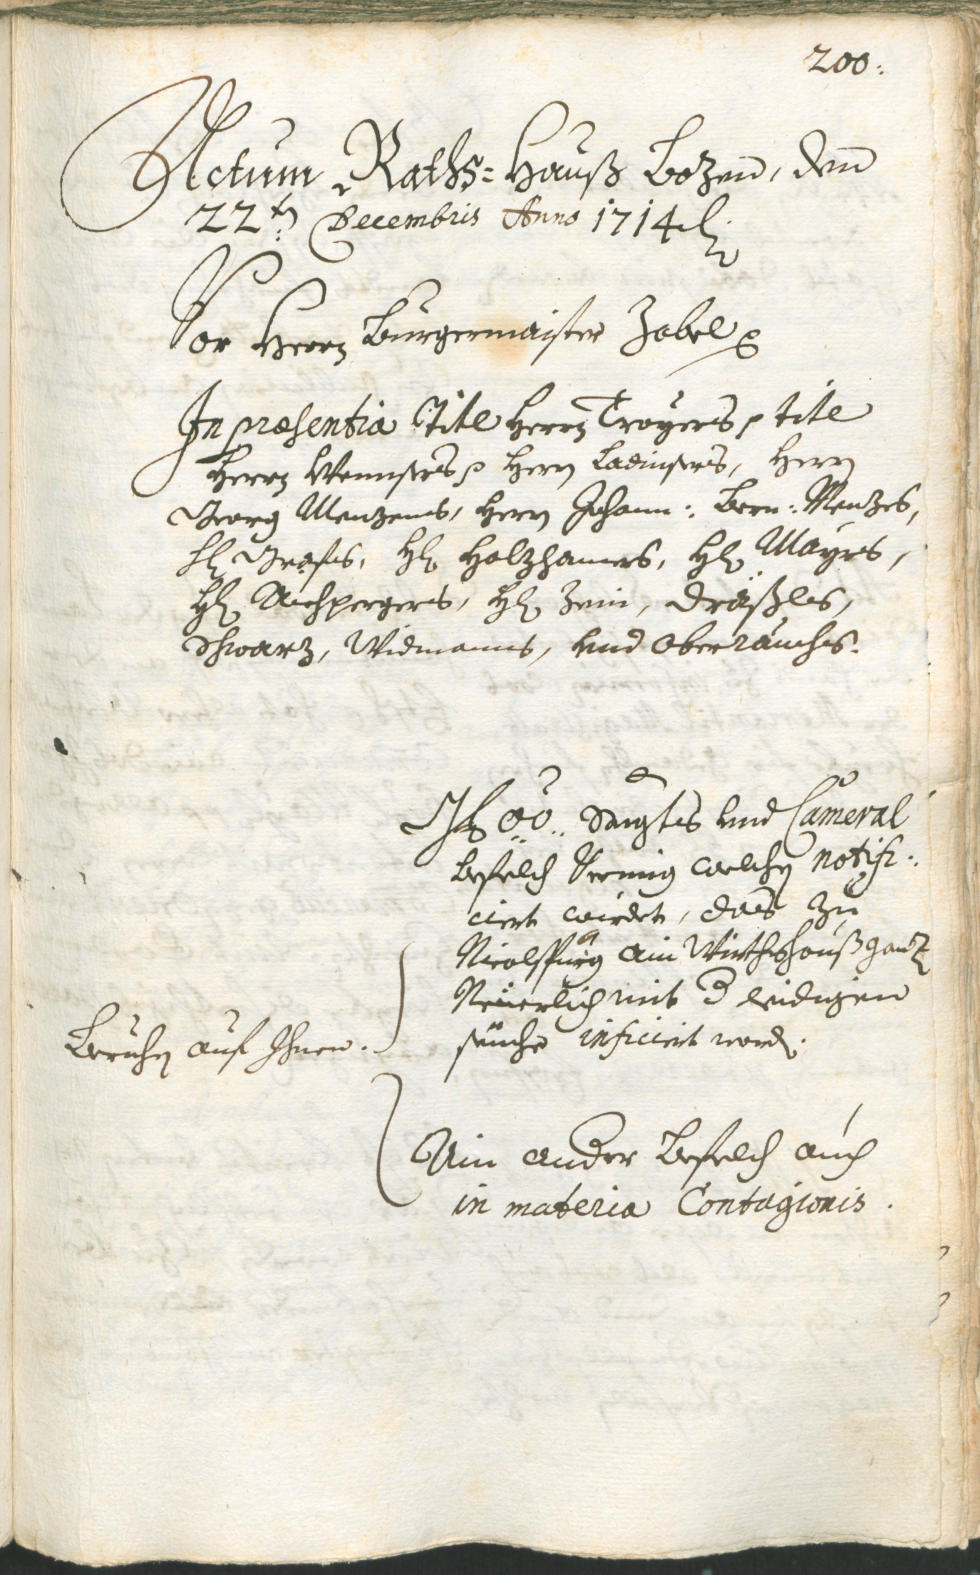 200.
Actum Raths=Hauß Bozen, den
22tn Decembris Anno 1714
Vor Herrn Burgermaister Zobel
In præsentia Title Herrn Troyers, title
Herrn Wennsers, Herrn Ladinsers, Herrn
Georg Menzens, Herrn Johann: Bern: Menzes,
H Grafes, H Holzhamers, H Mayrs,
H Aichpergers, H Zein, Dräßles,
Schwarz, Widmanns, und Oberrauchs.
OÖ: und Cameral
Befelch Vermig welchen notifi=
ciert wirdet, das zu
Nicolspurg ain Würthshauß ganz
Neuerlich mit d leidigen
seuche inficiert word.
Beruhen auf Ihnen.
Ain ander Befelch auch
in materia Contagionis.